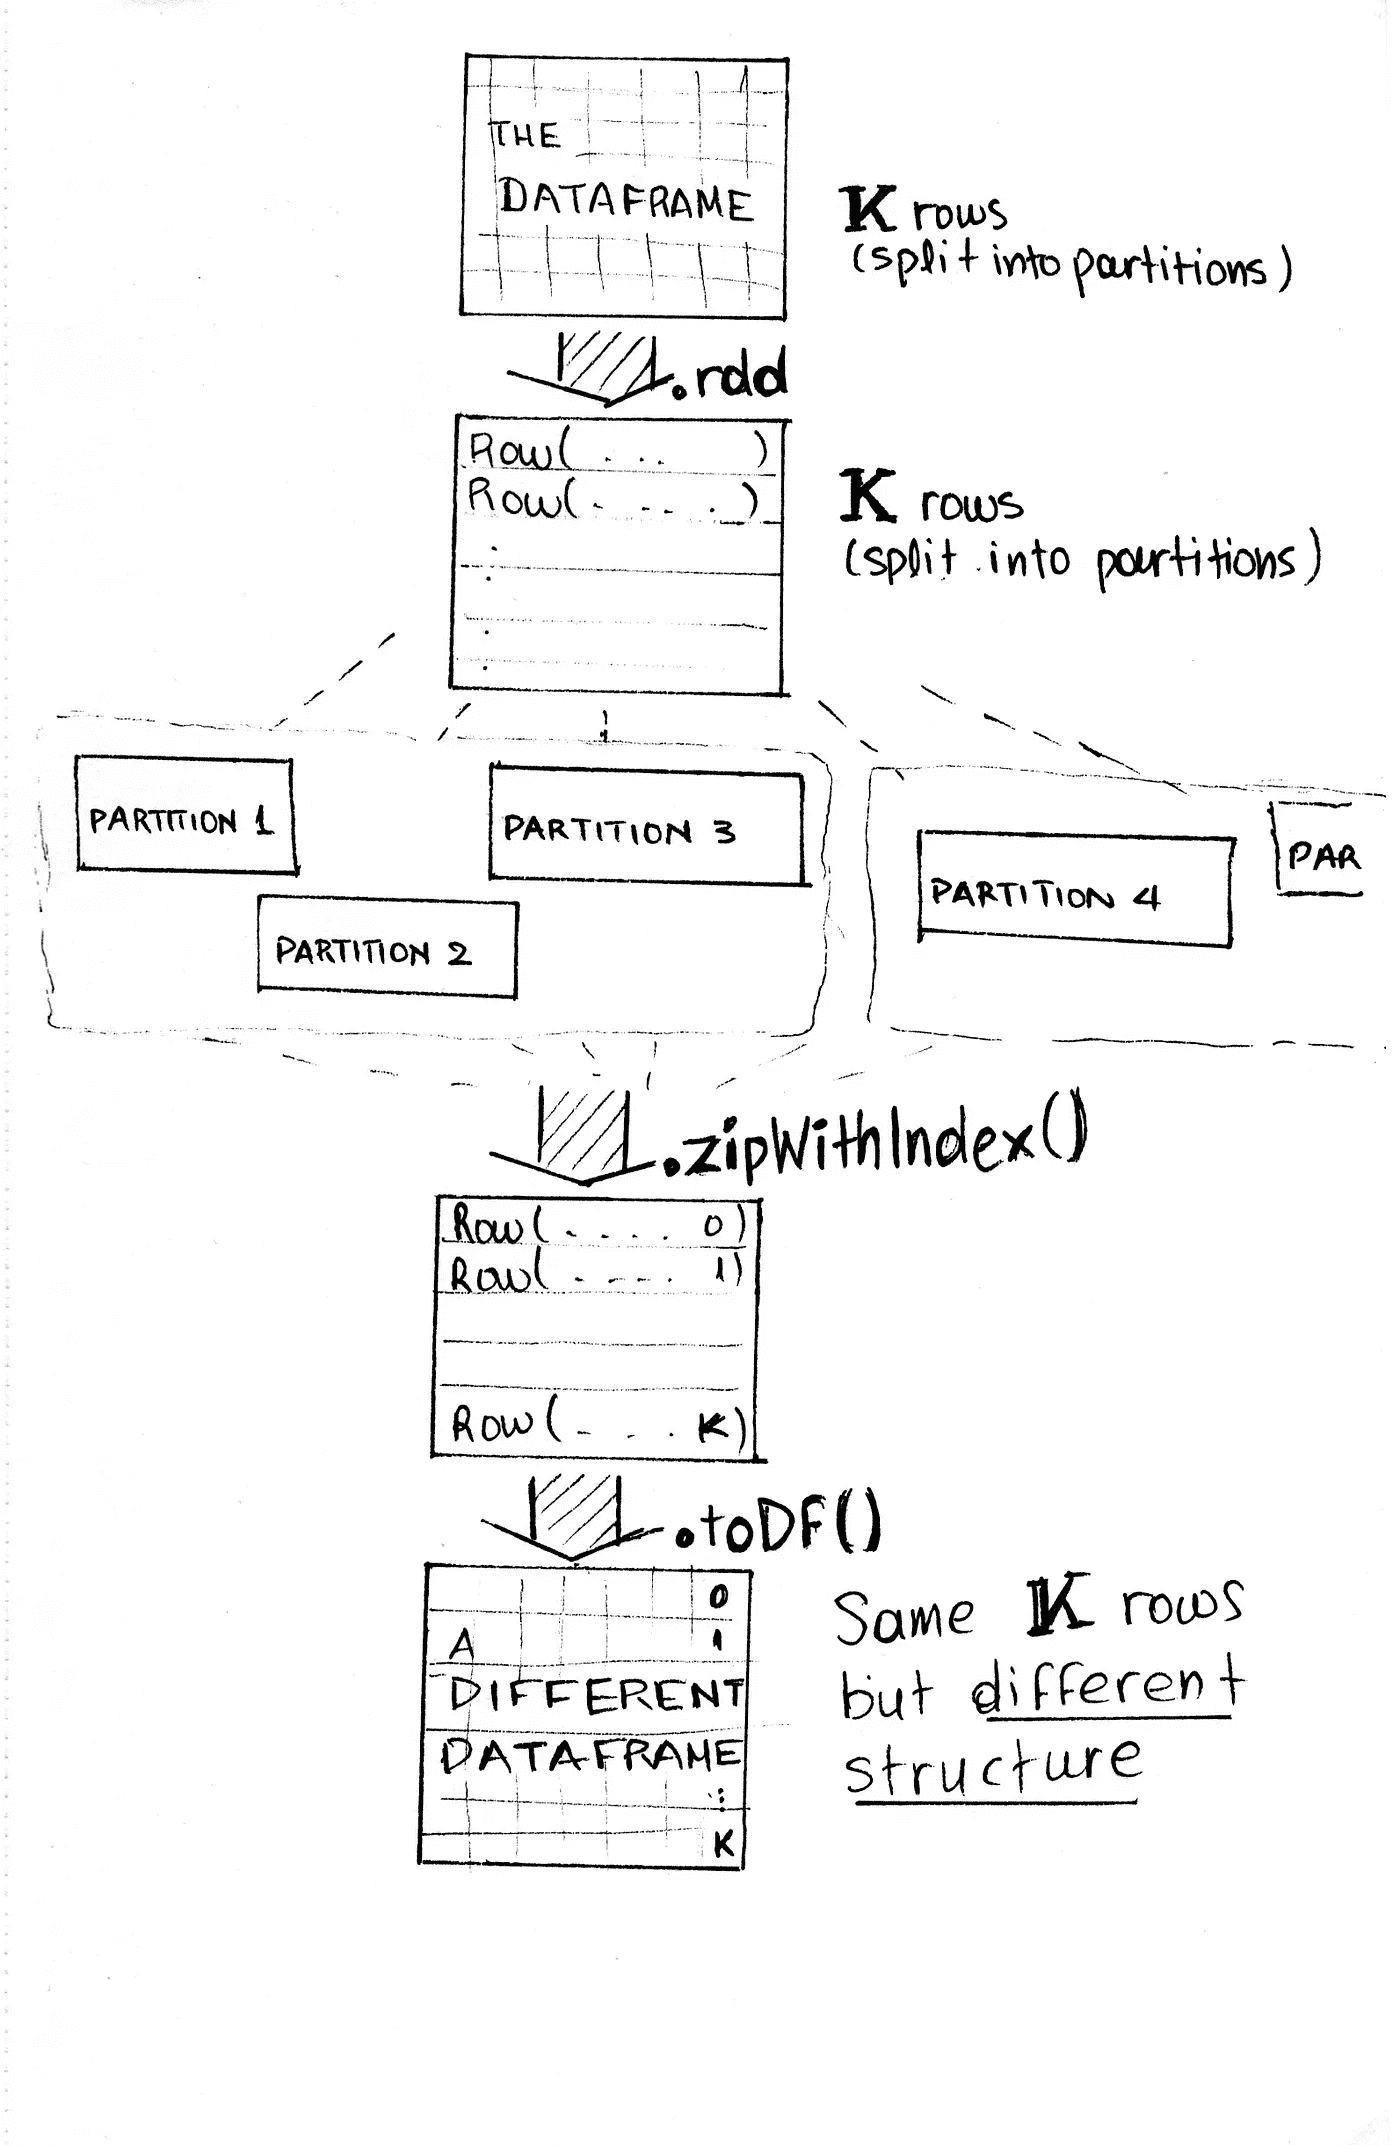 THE
DATAFRAME
K rows
(split into partitions)
.rdd
Row( ... )
Row( - -- . )
K rows
(split into partitions)
PARTITION 1
PARTITION 3
PARTITION 2
PARTITION 4
PAR
.zipWithIndex()
Row( . . . . 0)
Row( . --- . 1)
Row( - . . K)
.toDF()
0
A 1
DIFFERENT
DATAFRAME
:
K
Same K rows
but different
structure